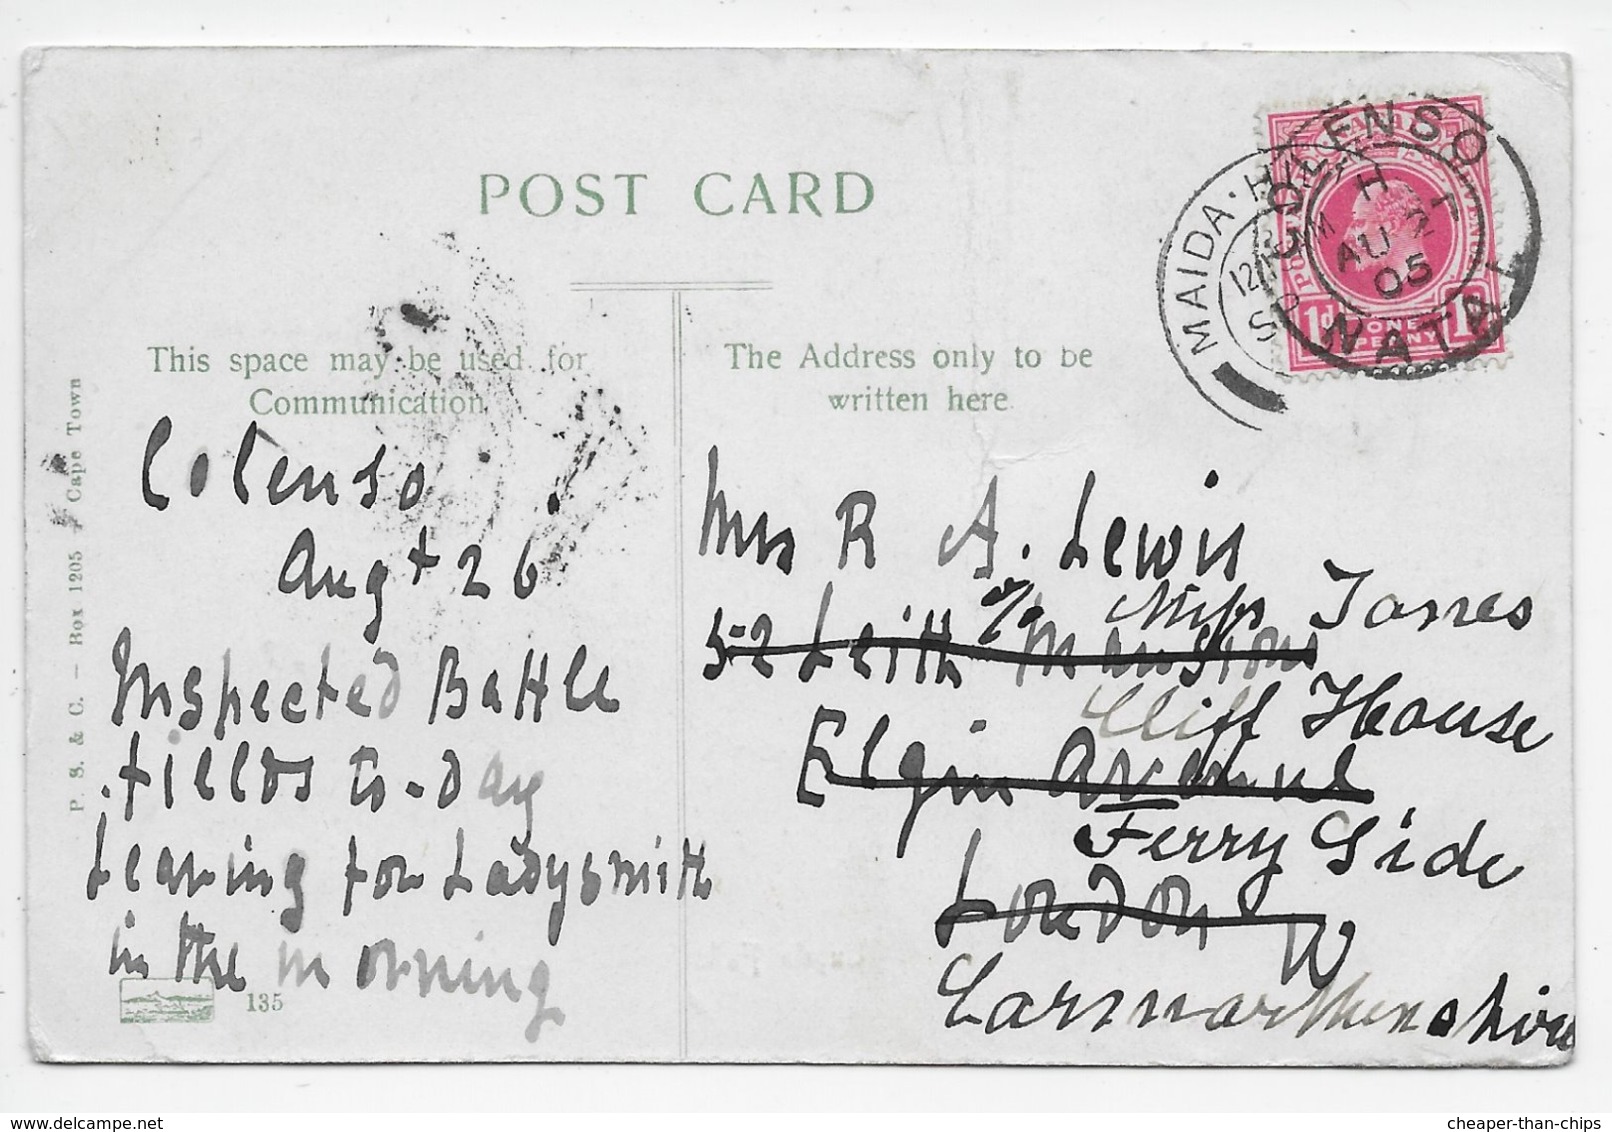 POST CARD
This space may be used for
Communication
The Address only to be
written here
P. S. & C. – Box 1205 – Cape Town
COLENSO
NATAL
AU
05
MAIDA·HILL
NATAL
POSTAGE
REVENUE
1d ONE PENNY 1d
Colenso.
Augt 26
Inspected Battle
fields to-day
Leaving for Ladysmith
in the morning
135
Mrs R A. Lewis
52 Leith Mansions
c/o Miss Jones
Cliff House
Elgin Avenue
Ferry Side
London W
Carmarthenshire
cheaper-than-chips